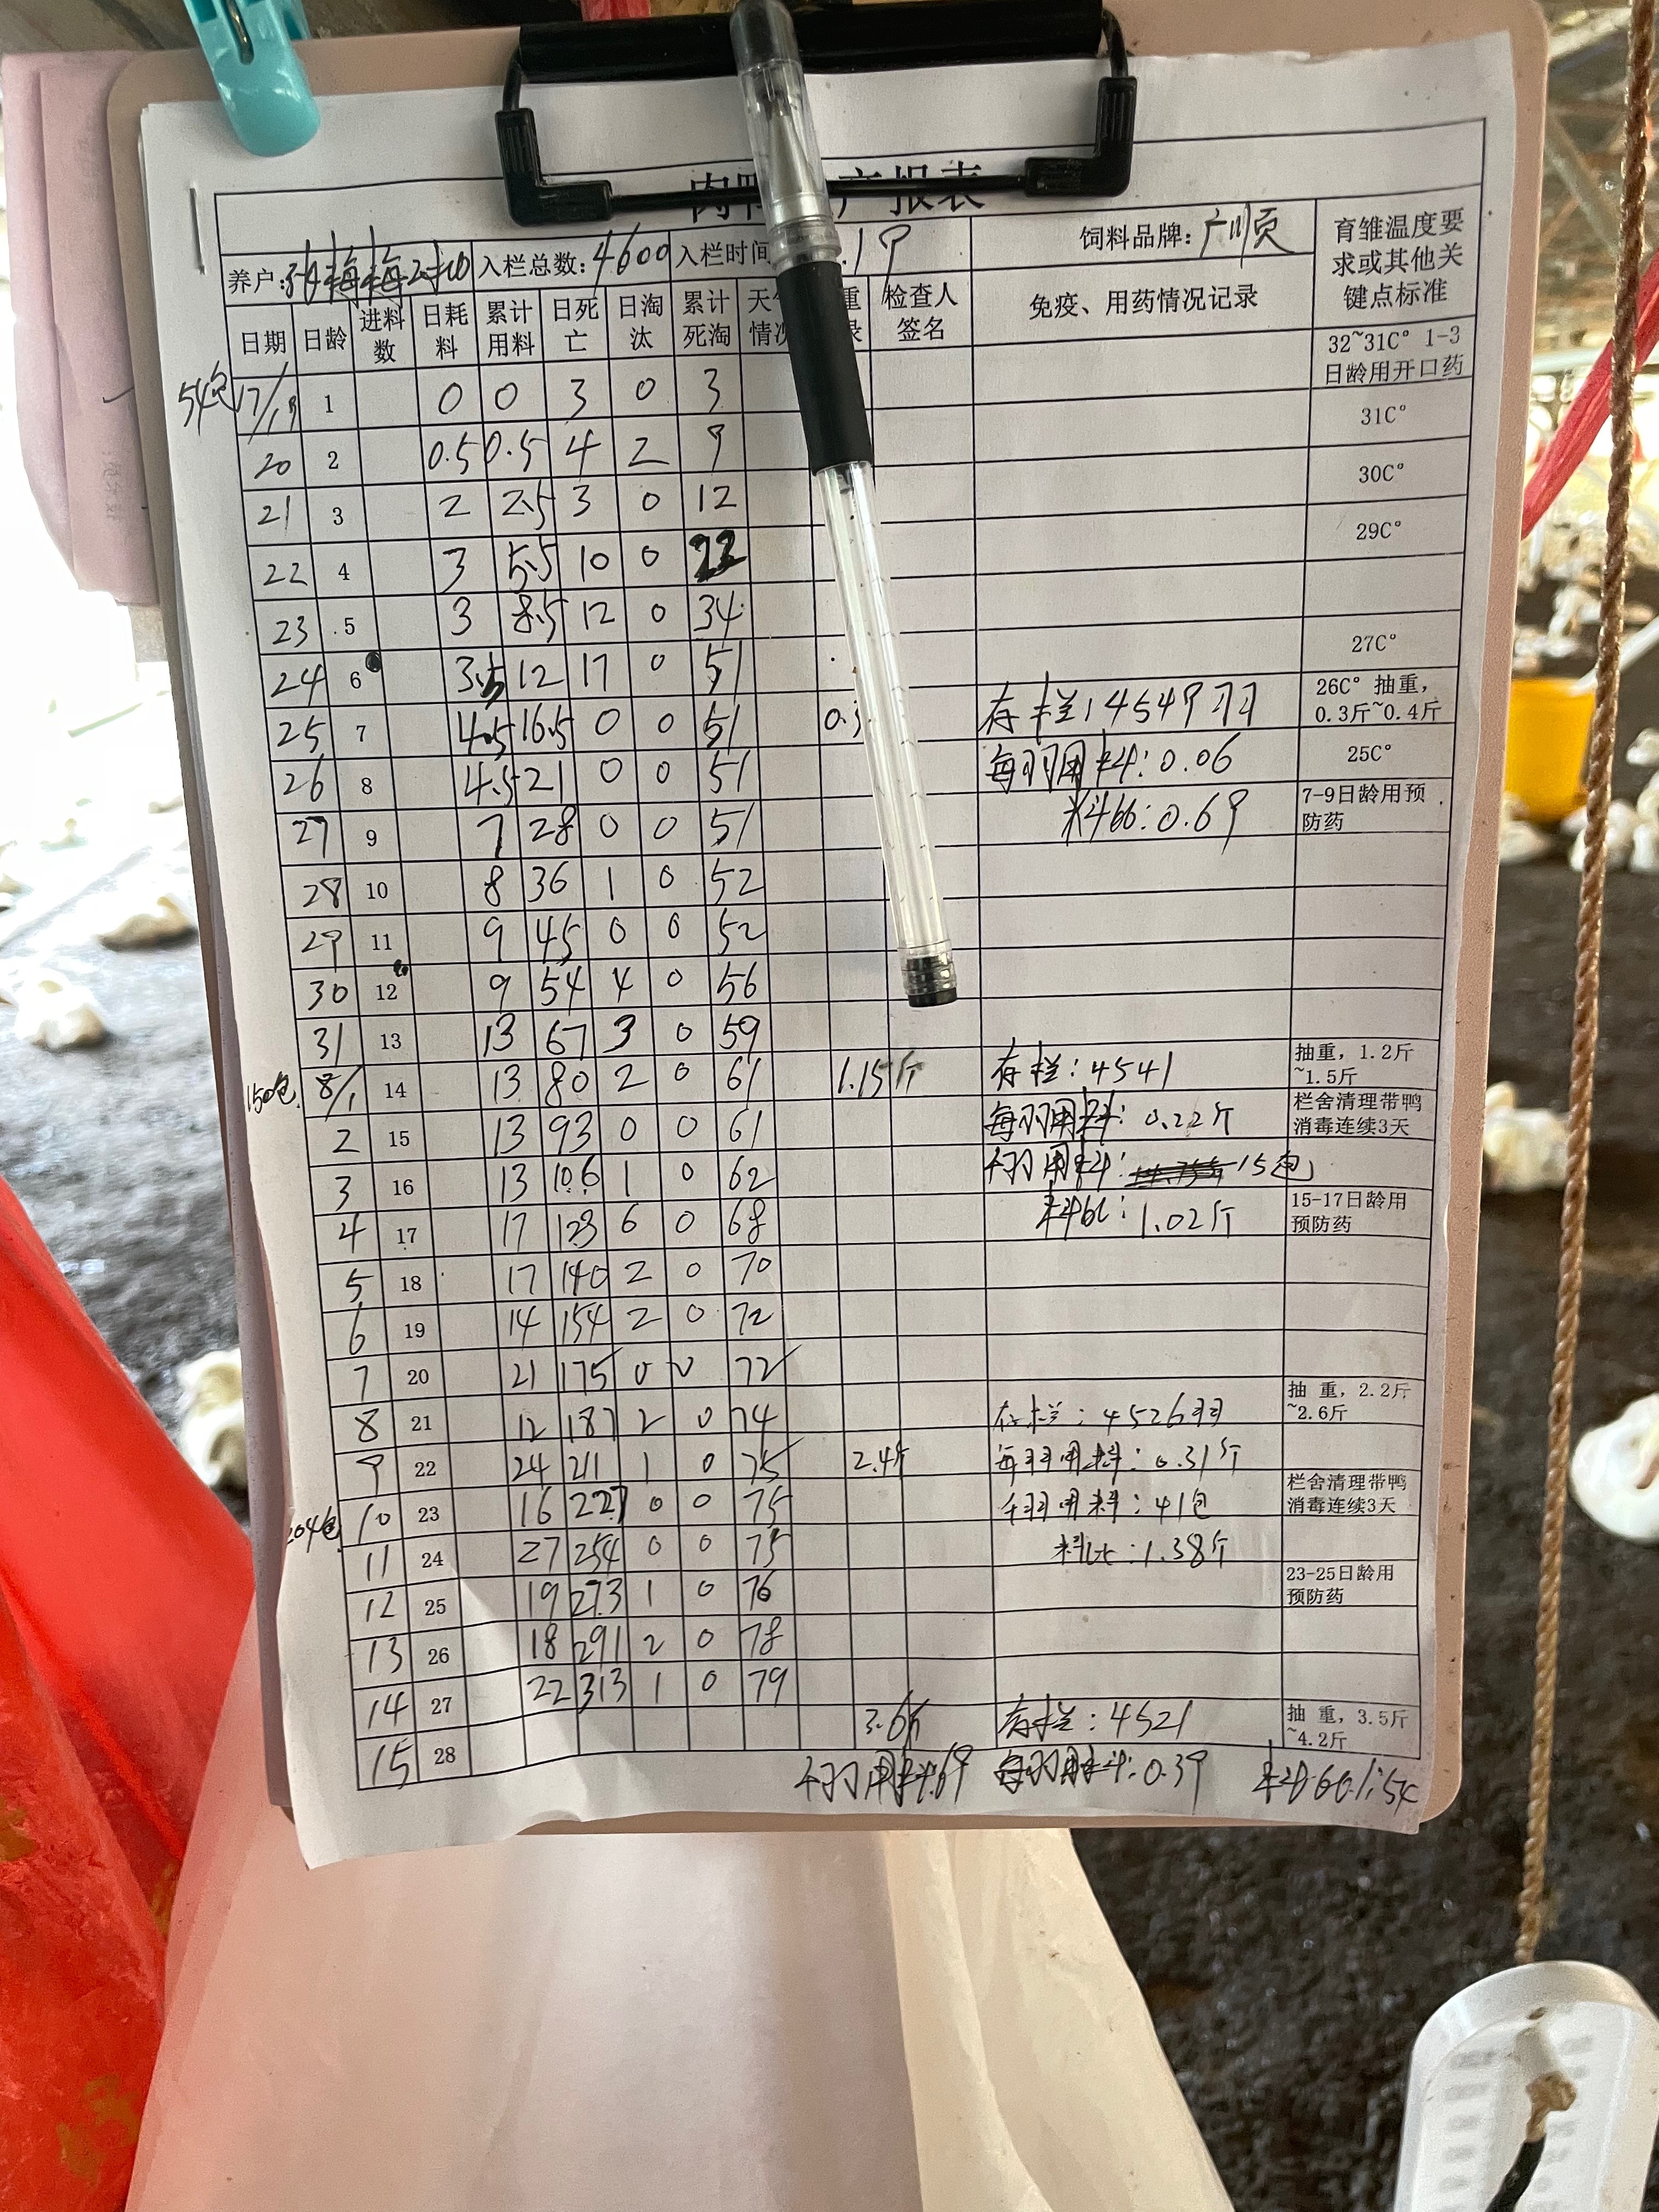 肉鸭 产报表
养户: 梅梅2批 入栏总数: 4600 入栏时间 .19 饲料品牌: 广顺 育雏温度要求或其他关键点标准
日期 日龄 进料数 日耗料 累计用料 日死亡 日淘汰 累计死淘 天 情况 重 录 检查人签名 免疫、用药情况记录
32~31C° 1-3日龄用开口药
54包 17/19 1 0 0 3 0 3
31C°
20 2 0.5 0.5 4 2 9
30C°
21 3 2 2.5 3 0 12
29C°
22 4 3 5.5 10 0 22
23 5 3 8.5 12 0 34
27C°
24 6 3.5 12 17 0 51
25 7 4.5 16.5 0 0 51 0.3 存栏: 4549羽 26C° 抽重, 0.3斤~0.4斤
26 8 4.5 21 0 0 51 每羽用料: 0.06 25C°
27 9 7 28 0 0 51 料比: 0.69 7-9日龄用预防药
28 10 8 36 1 0 52
29 11 9 45 0 0 52
30 12 9 54 4 0 56
31 13 13 67 3 0 59
150包 8/1 14 13 80 2 0 61 1.15斤 存栏: 4541 抽重, 1.2斤~1.5斤
2 15 13 93 0 0 61 每羽用料: 0.22斤 栏舍清理带鸭消毒连续3天
3 16 13 106 1 0 62 千羽用料: 15包
4 17 17 123 6 0 68 料比: 1.02斤 15-17日龄用预防药
5 18 17 140 2 0 70
6 19 14 154 2 0 72
7 20 21 175 0 0 72
8 21 12 187 2 0 74 存栏: 4526羽 抽 重, 2.2斤~2.6斤
9 22 24 211 1 0 75 2.4斤 每羽用料: 0.31斤
204包 10 23 16 227 0 0 75 千羽用料: 41包 栏舍清理带鸭消毒连续3天
11 24 27 254 0 0 75 料比: 1.38斤
12 25 19 273 1 0 76 23-25日龄用预防药
13 26 18 291 2 0 78
14 27 22 313 1 0 79
15 28 3.6斤 存栏: 4521 抽 重, 3.5斤~4.2斤
千羽用料69 每羽用料: 0.39 料比